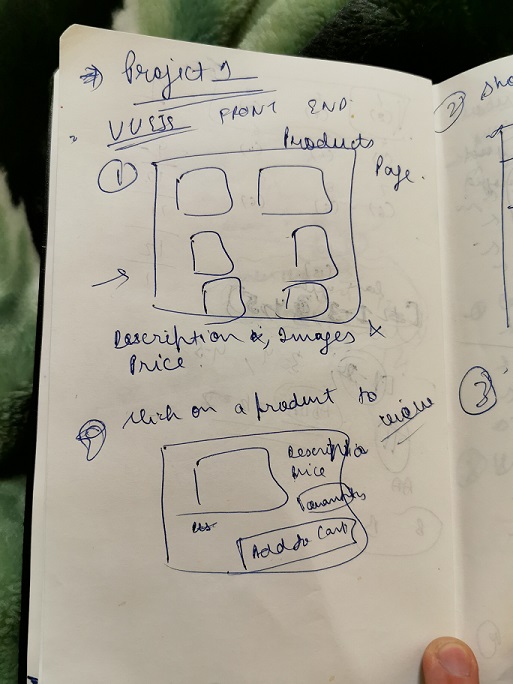 Project 1
VUEJS FRONT END
① Products
Page.
Description &, Images &
Price.
Click on a product to
view
Description
Price
Quantity
Add to Cart
②
③